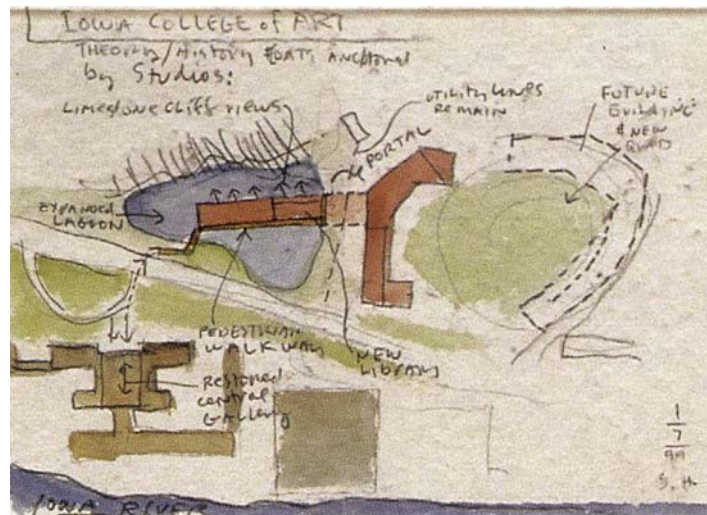 IOWA COLLEGE of ART
THEORY/HISTORY FLOATS ANCHORED
by Studios:
LIMESTONE CLIFF VIEWS
UTILITY LINES
REMAIN
FUTURE
BUILDING
& NEW
QUAD
PORTAL
EXPANDED
LAGOON
PEDESTRIAN
WALKWAY
NEW
LIBRARY
RESTORED
central
GALLERY
1
7
99
S.H.
IOWA RIVER